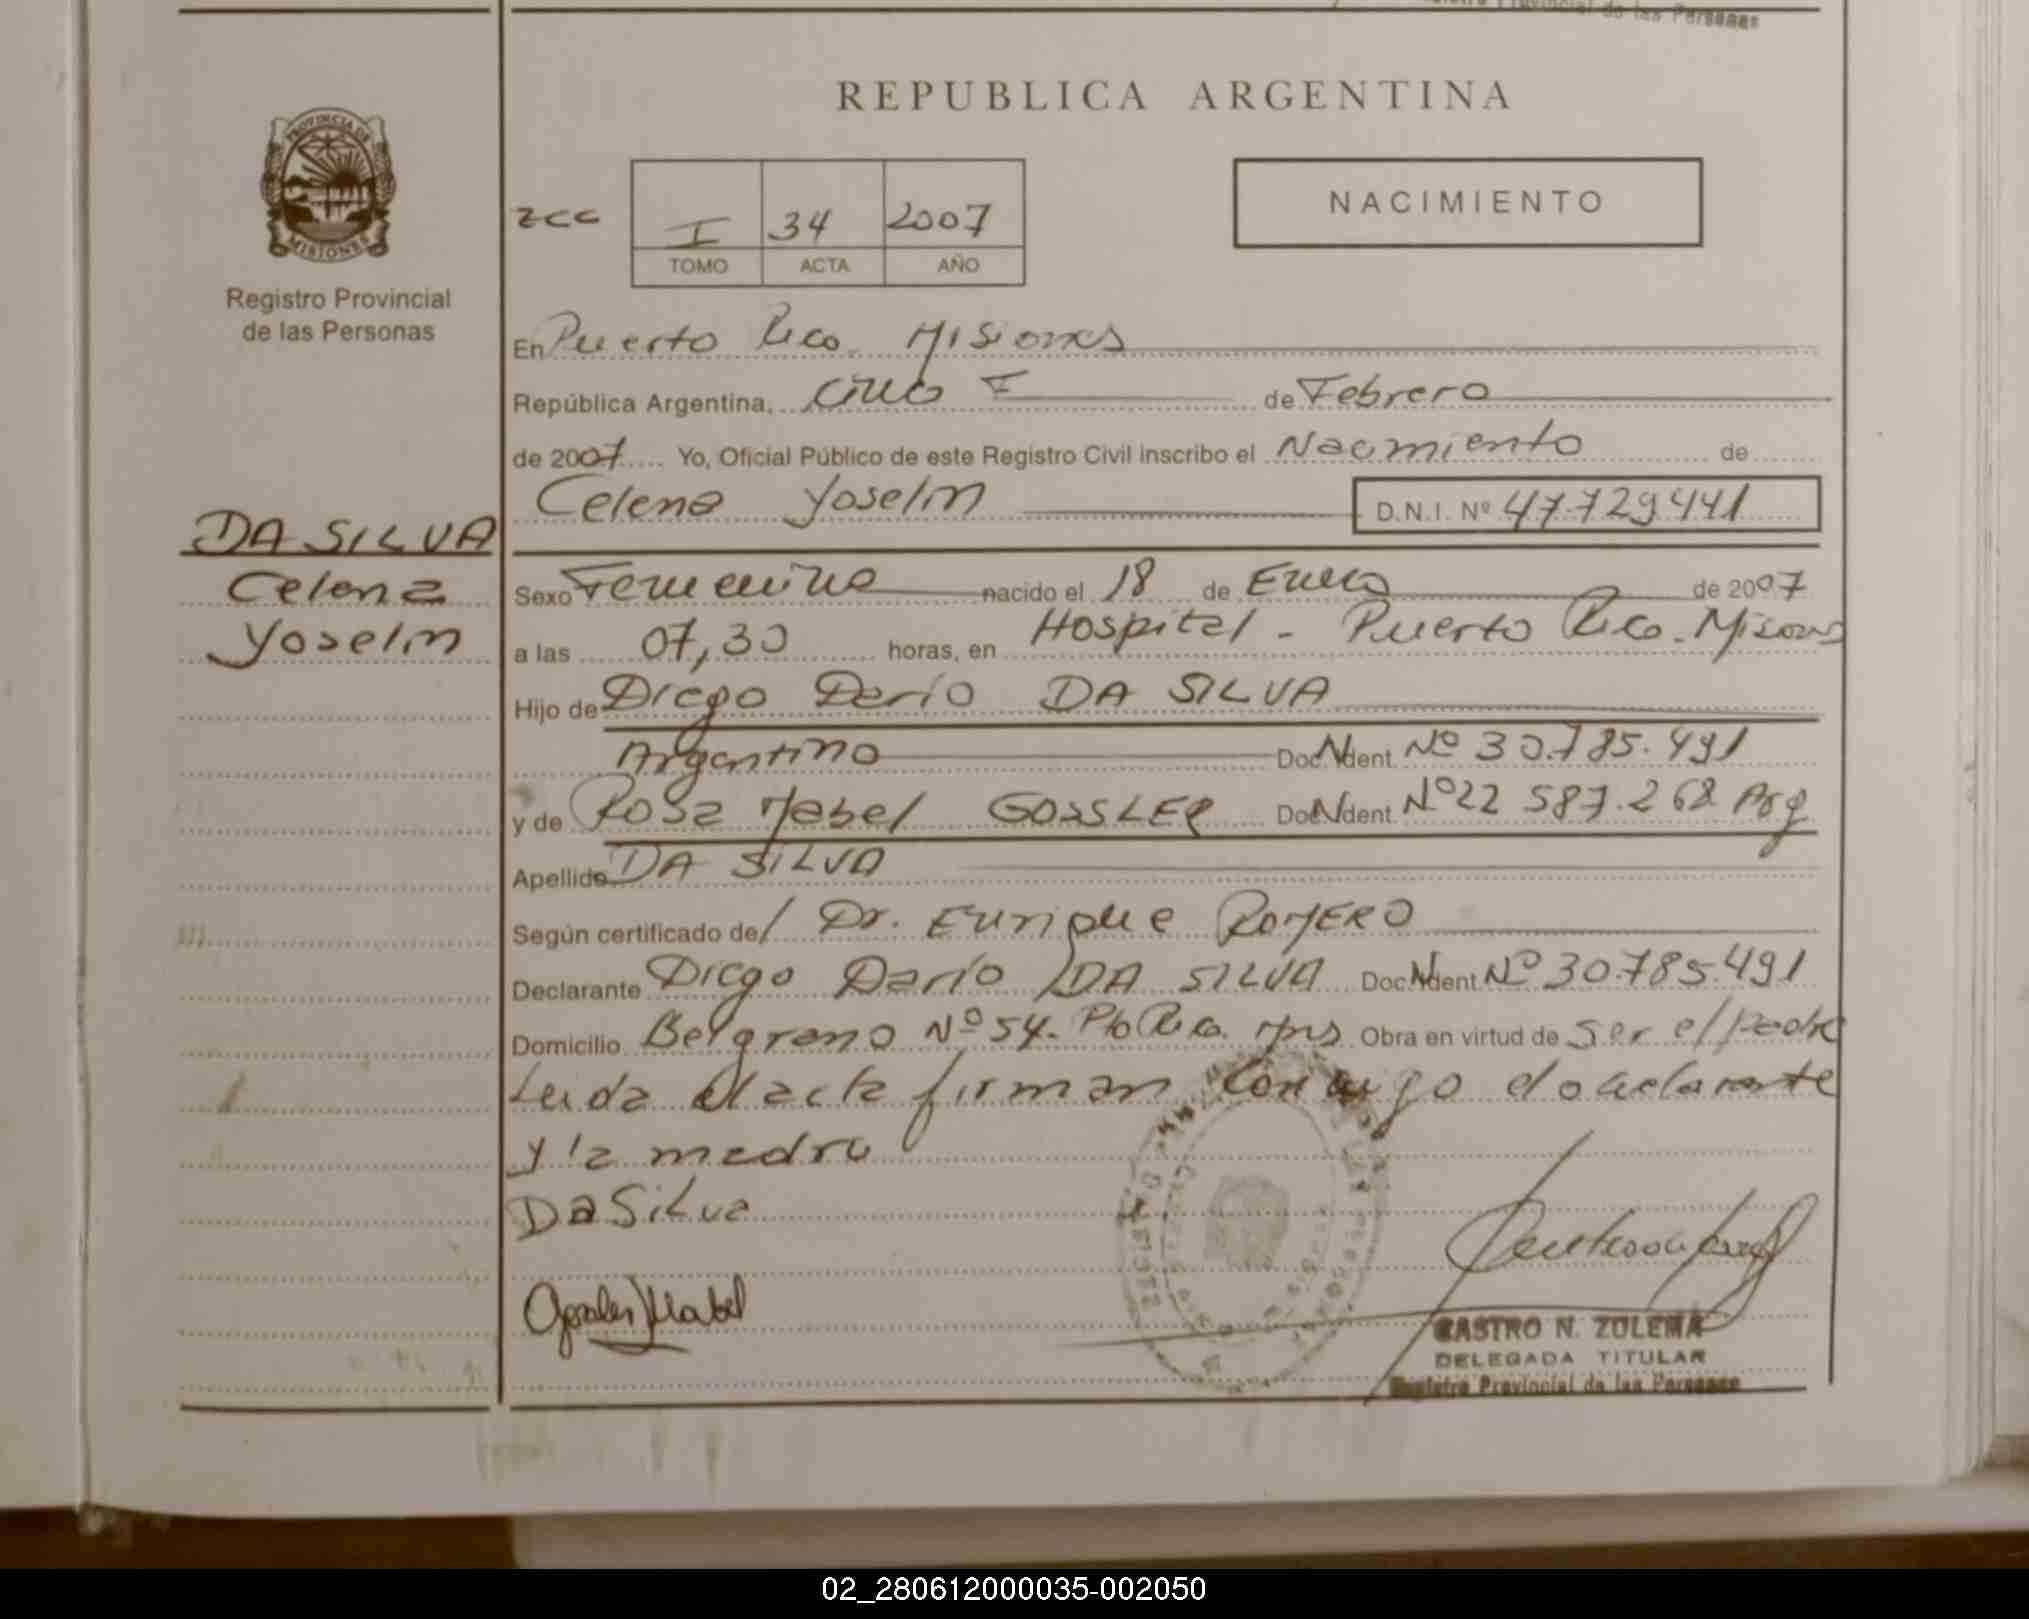 Registro Provincial de las Personas
REPUBLICA ARGENTINA
PROVINCIA DE
MISIONES
Registro Provincial
de las Personas
zcc
I 34 2007
TOMO ACTA AÑO
NACIMIENTO
En Puerto Rico. Misiones
República Argentina, cinco de Febrero
de 2007 Yo, Oficial Público de este Registro Civil inscribo el Nacimiento de
Celena Yoselin D.N.I. Nº 47.729.441
DA SILVA
Celena
Yoselin
Sexo Femenino nacido el 18 de Enero de 2007
a las 07,30 horas, en Hospital - Puerto Rico. Misiones
Hijo de Diego Dario DA SILVA
Argentino Doc. Ident. Nº 30.785.491
y de Rosa Mabel GOSSLER Doc. Ident. Nº 22 587.268 Arg
Apellido DA SILVA
Según certificado de/ Dr. Enrique ROMERO
Declarante Diego Dario DA SILVA Doc. Ident Nº 30.785.491
Domicilio Belgrano Nº 54. Pto Rico. Mnes Obra en virtud de Ser el padre
Leida el acta firman conmigo el declarante
y la madre
DaSilva
Mabel
CASTRO N. ZULEMA
DELEGADA TITULAR
Registro Provincial de las Personas
02_280612000035-002050